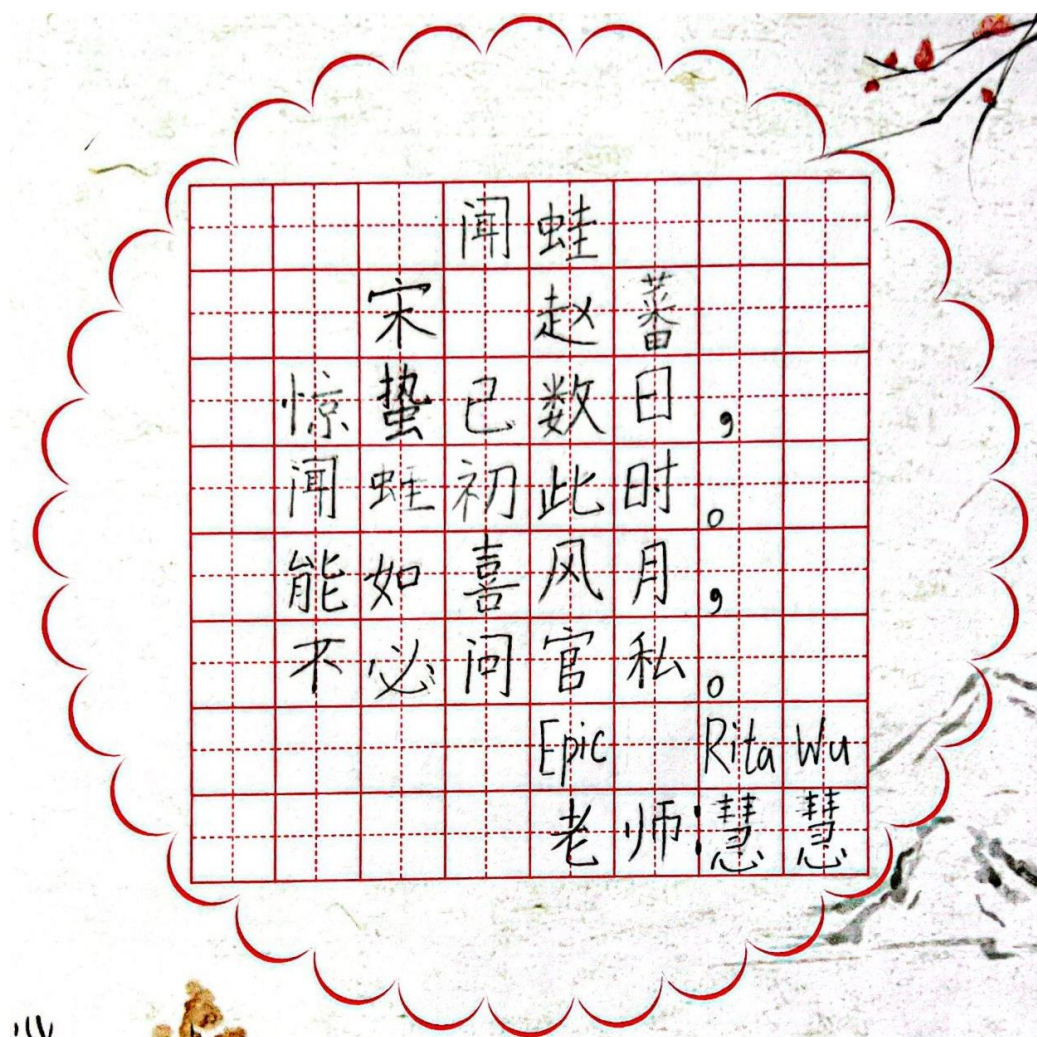 闻蛙
宋 赵蕃
惊蛰已数日，
闻蛙初此时。
能如喜风月，
不必问官私。
Epic Rita Wu
老师:慧慧